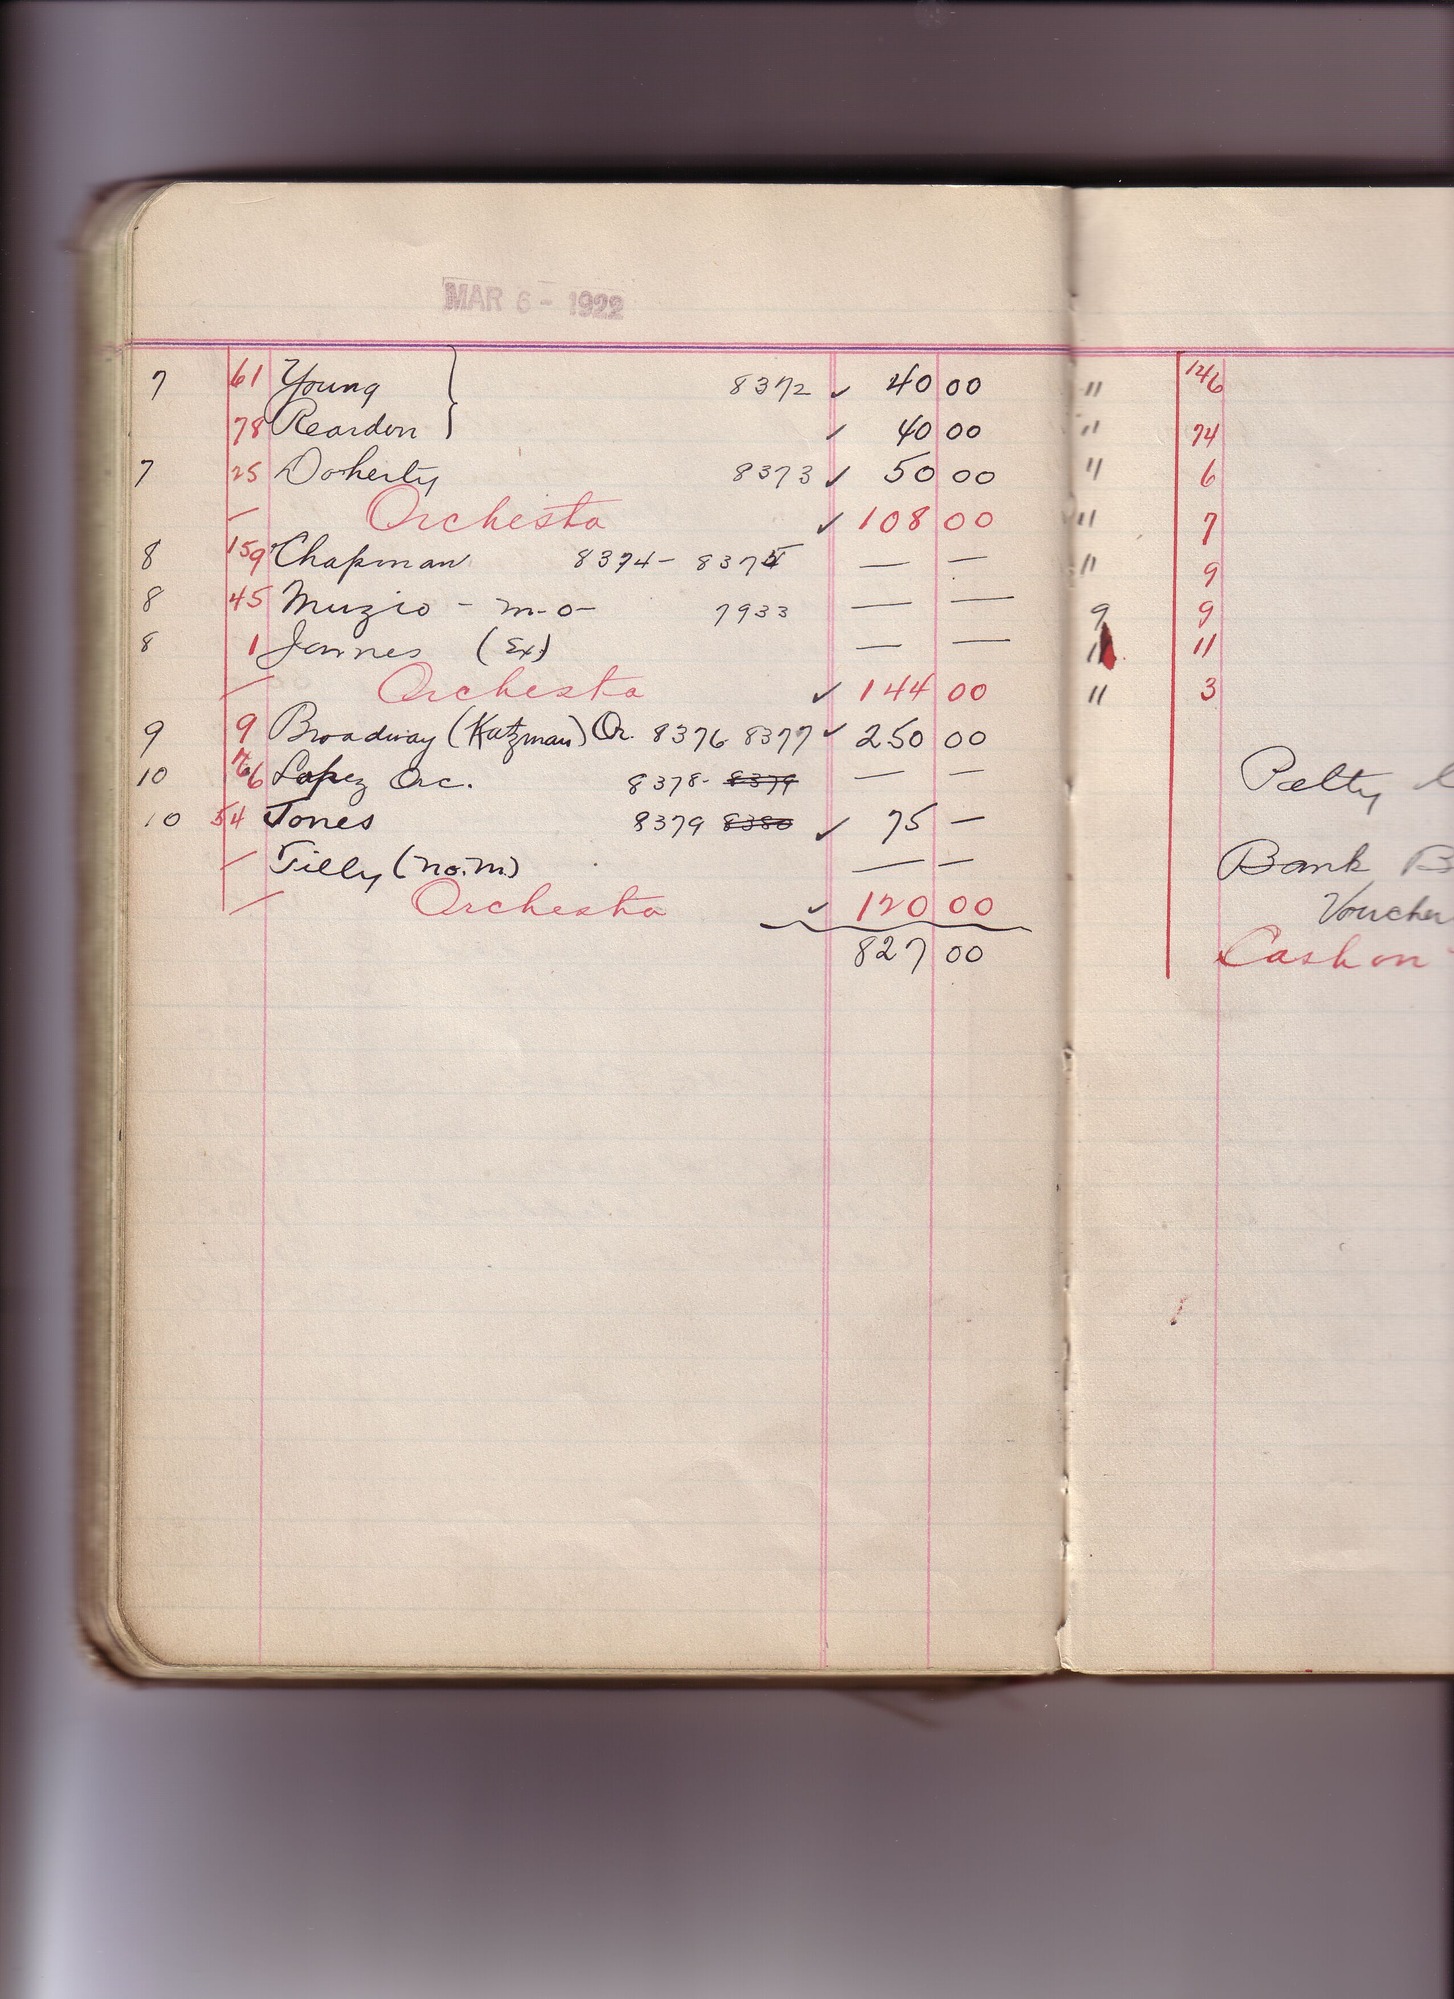 MAR 6 - 1922
7 61 Young } 8372 ✓ 40 00
78 Reardon ✓ 40 00
7 25 Doherty 8373 ✓ 50 00
— Orchesta ✓ 108 00
8 159 Chapman 8374 - 8375 — —
8 45 Muzio - m-o- 7933 — —
8 1 Jannes (Ex) — —
— Orchesta ✓ 144 00
9 9 Broadway (Katzman) Or. 8376 8377 ✓ 250 00
10 Lopez Orc. 8378- 8379 — —
10 54 Jones 8379 8380 ✓ 75 —
— Tilly (no.m.) — —
— Orchesta ✓ 120 00
827 00
" 146
" 74
" 6
" 7
" 9
9 9
11
" 3
Petty
Bank B
Voucher
Cash on